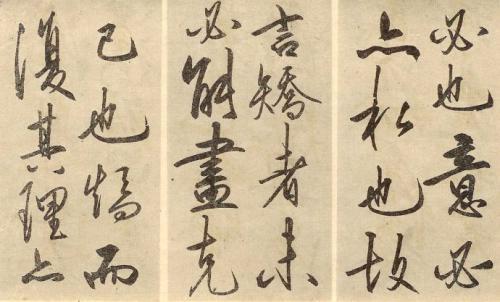 必也意必
亦私也故
言矯者未
必能盡克
己也矯而
復其理亦